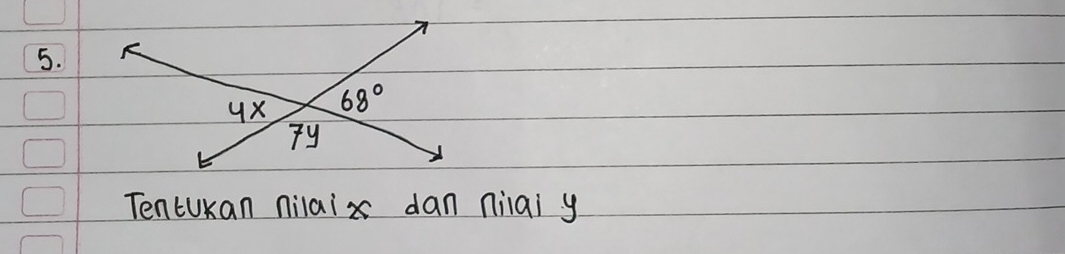 5.
4x 68°
7y
Tentukan nilai x dan nilai y